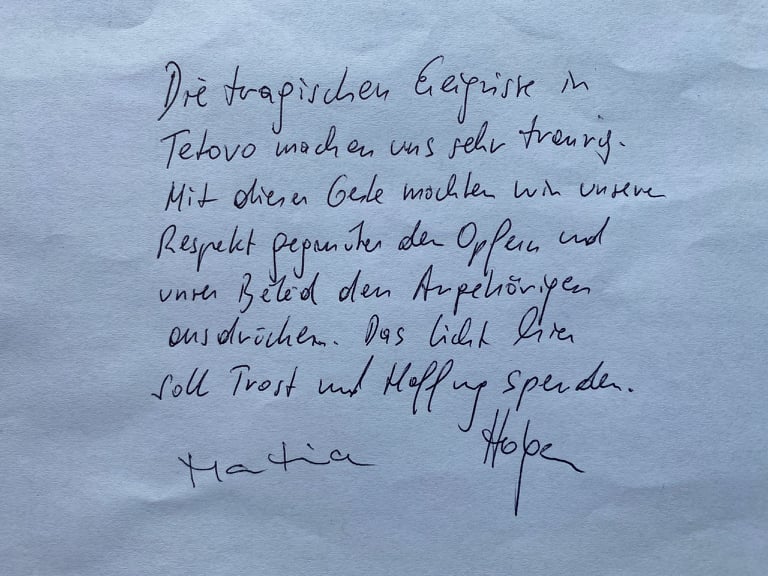 Die tragischen Ereignisse in
Tetovo machen uns sehr traurig.
Mit dieser Geste möchten wir unseren
Respekt gegenüber den Opfern und
unser Beileid den Angehörigen
ausdrücken. Das Licht hier
soll Trost und Hoffnung spenden.
Martina Holgen